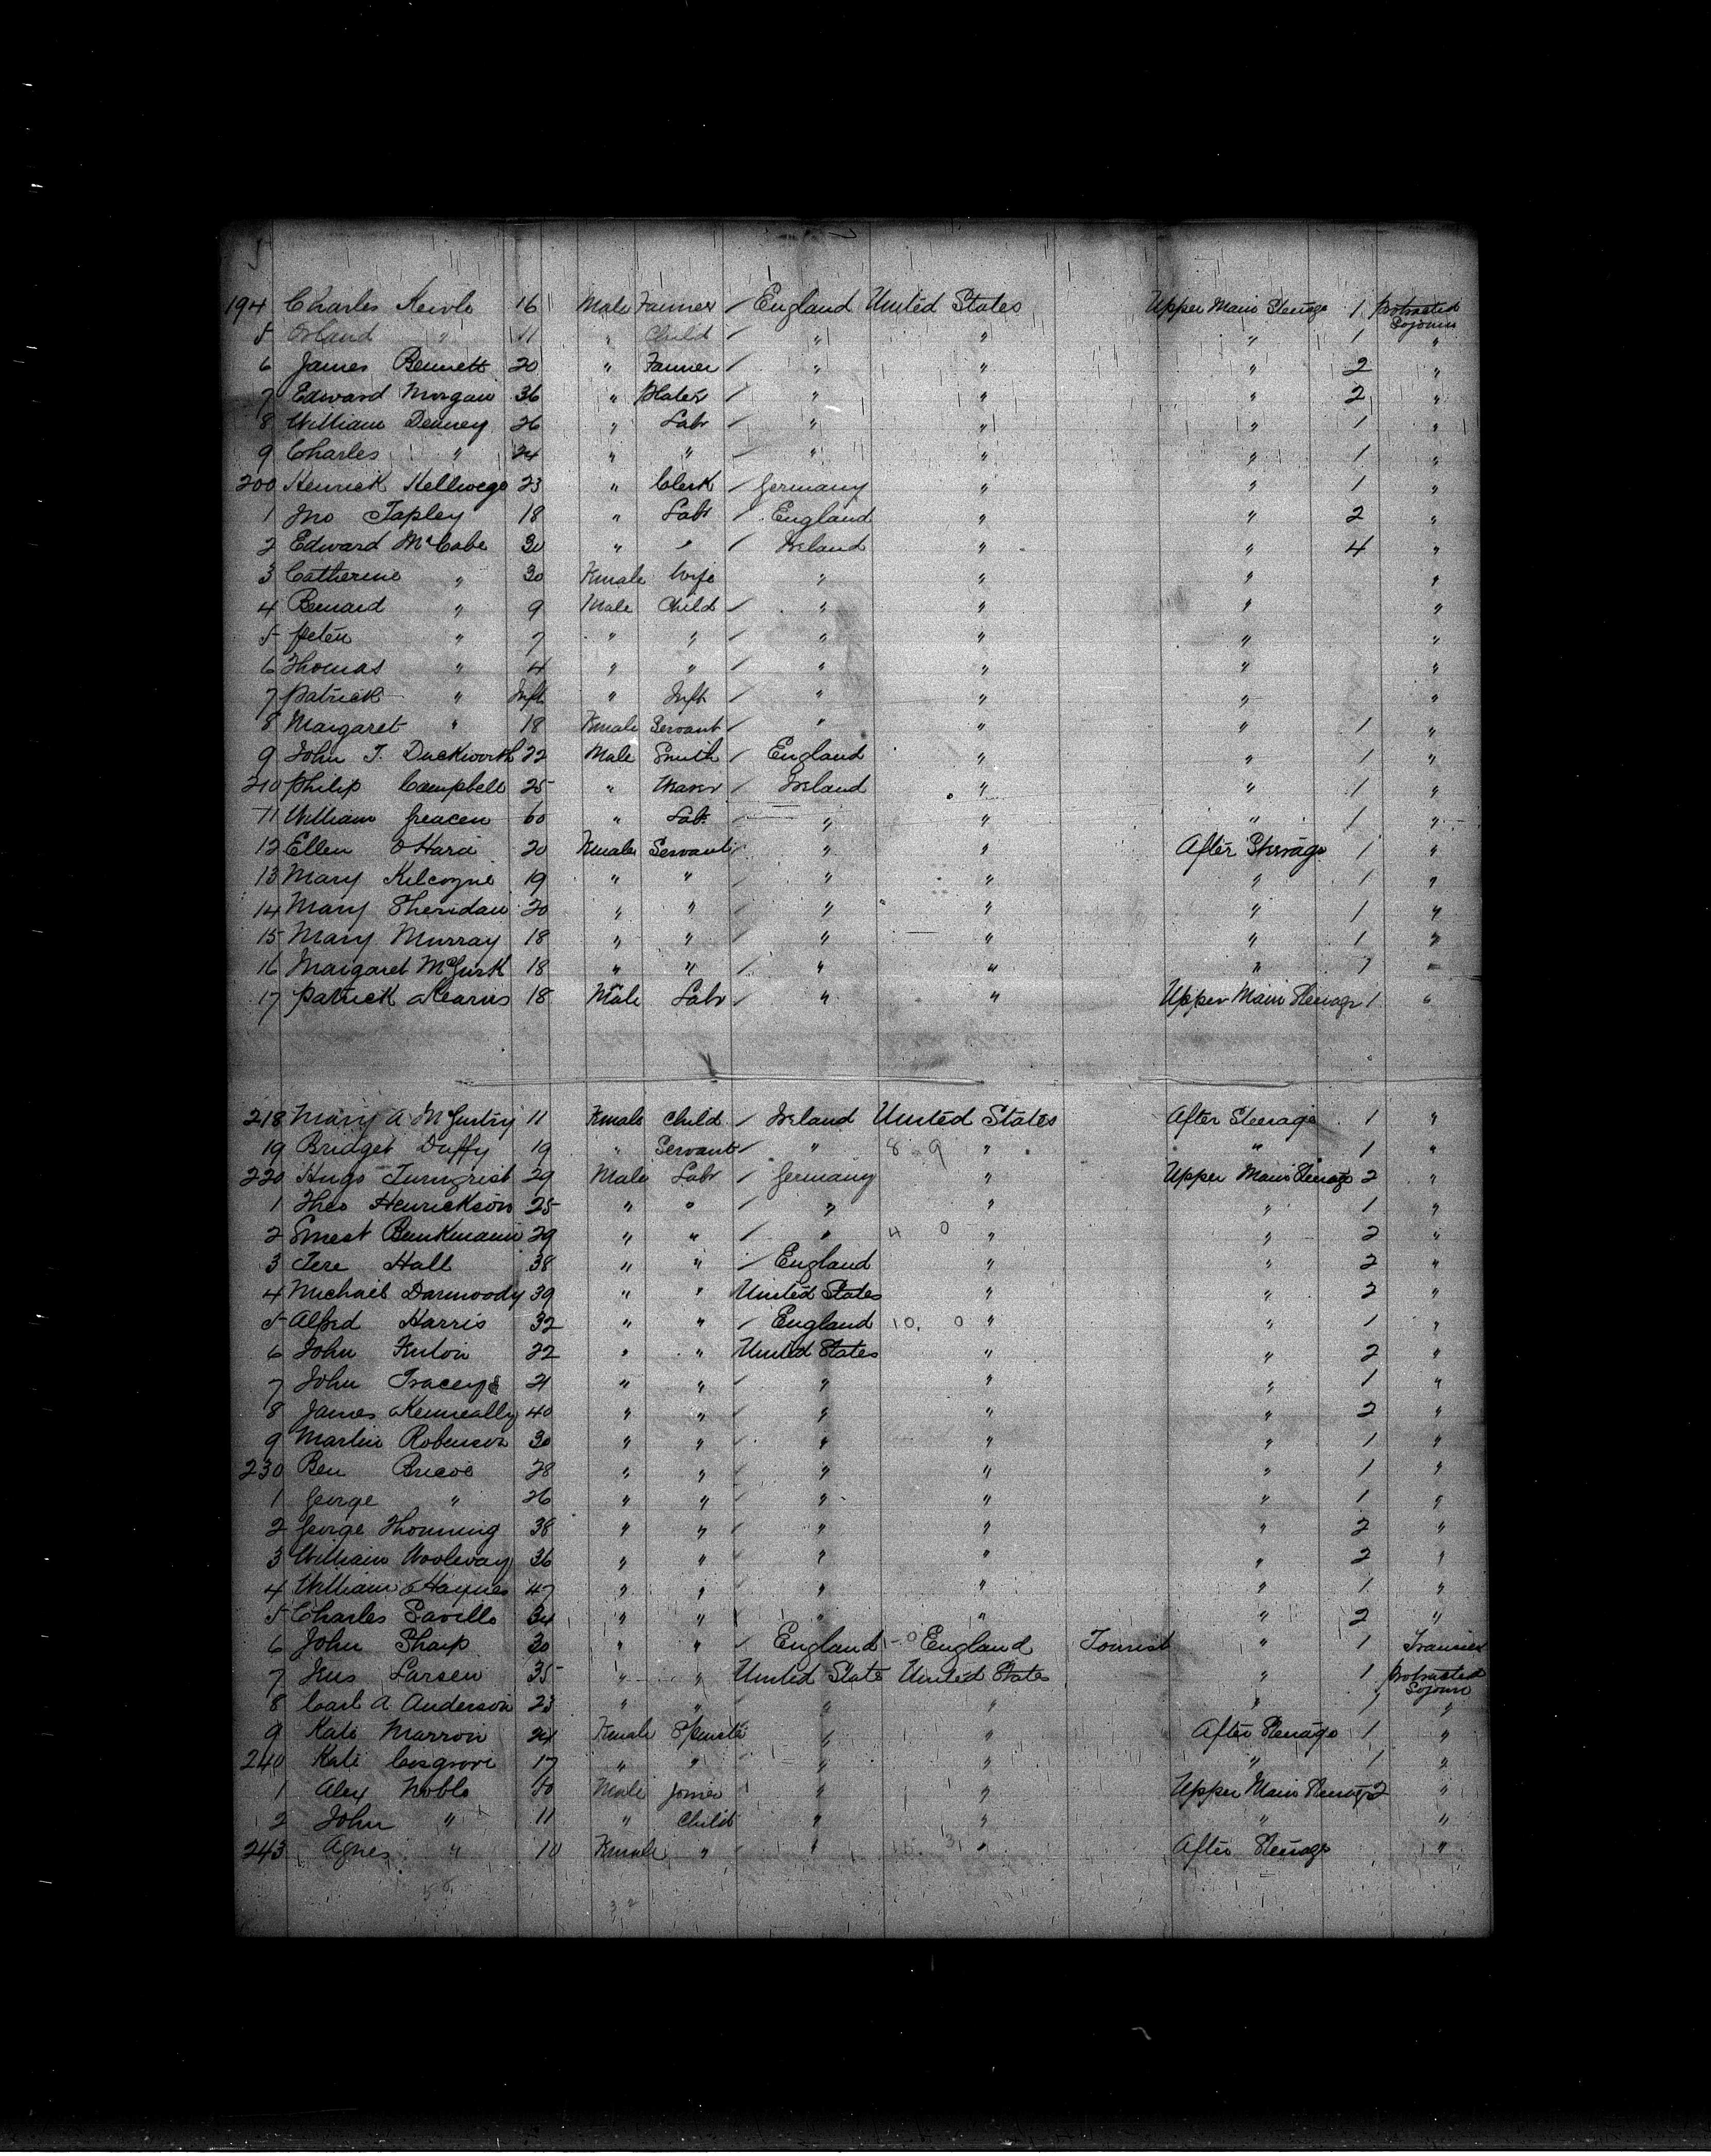 5
194 Charles Kewle 16 Male Farmer / England United States Upper Main Steerage 1 Protracted Sojourn
5 Orland " 11 " Child / " " " 1 "
6 James Bennett 20 " Farmer / " " " 2 "
7 Edward Morgan 36 " Plater / " " " 2 "
8 William Denney 26 " Labr / " " " 1 "
9 Charles " 24 " " / " " " 1 "
200 Henrick Kellwege 23 " Clerk / Germany " " 1 "
1 Jno Tapley 18 " Labr / England " " 2 "
2 Edward McCabe 30 " " / Ireland " " 4 "
3 Catherine " 30 Female Wife " " " "
4 Bernard " 9 Male Child / " " " "
5 Peter " 7 " " / " " " "
6 Thomas " 4 " " / " " " "
7 Patrick " Inft " Inft / " " " "
8 Margaret " 18 Female Servant / " " " 1 "
9 John T. Duckworth 22 Male Smith / England " " 1 "
210 Philip Campbell 25 " / Ireland " " 1 "
11 William Greacen 60 " Labr " " " 1 "
12 Ellen O'Hara 20 Female Servant / " " After Steerage 1 "
13 Mary Kilcoyne 19 " " / " " " 1 "
14 Mary Sheridan 20 " " / " " " 1 "
15 Mary Murray 18 " " / " " " 1 "
16 Margaret McGurk 18 " " / " " " 1 "
17 Patrick Kearns 18 Male Labr / " " Upper Main Steerage 1 "
218 Mary A McGurtry 11 Female Child / Ireland United States After Steerage 1 "
19 Bridget Duffy 19 " Servant / " 8 9 " " 1 "
220 Hugo Turnqrist 29 Male Labr / Germany " Upper Main Steerage 2 "
1 Theo Henrickson 25 " " / " " " 1 "
2 Ernest Bunkmann 29 " " / " 4 0 " " 2 "
3 Jere Hall 38 " " / England " " 2 "
4 Michael Darmoody 39 " " United States " " 2 "
5 Alfrd Harris 32 " " / England 10. 0 " " 1 "
6 John 22 " " United States " " 2 "
7 John Tracey 21 " " / " " " 1 "
8 James Kenneally 40 " " / " " " 2 "
9 Martin Robenson 30 " " / " " " 1 "
230 Ben 28 " " / " " " 1 "
1 George " 26 " " / " " " 1 "
2 George Thonning 38 " " / " " " 2 "
3 William Woolway 36 " " / " " " 2 "
4 William Haynes 47 " " / " " " 1 "
5 Charles Saville 34 " " " " " 2 "
6 John Sharp 30 " " / England England Tourist " 1 Transient
7 Jens Larsen 35 " " United State United States " 1 Protracted Sojourn
8 Carl A Anderson 23 " " " " " 1 "
9 Kate Marron 24 Female Spinster " " After Steerage 1 "
240 Kate Cosgrove 17 " " / " " " 1 "
1 Alex Noble 50 Male Joiner " " Upper Main Steerage 2 "
2 John " 11 " Child " " " "
243 Agnes " 10 Female " " " After Steerage "